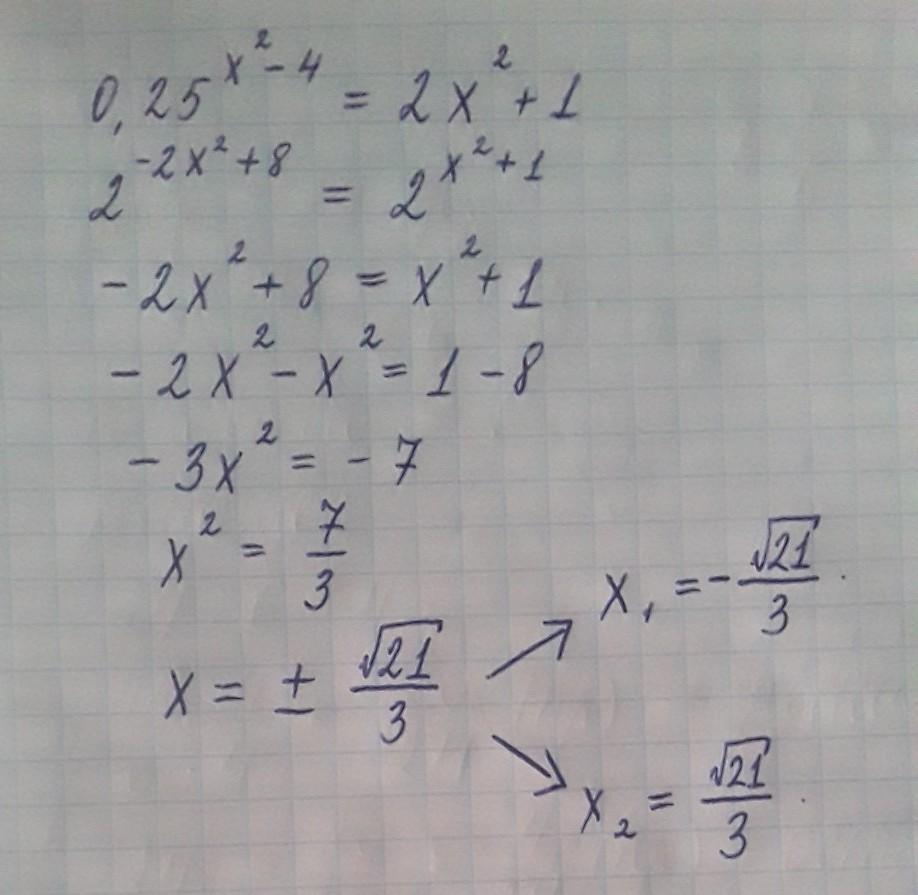 0,25^{x^2-4} = 2x^2+1
2^{-2x^2+8} = 2^{x^2+1}
-2x^2+8 = x^2+1
-2x^2-x^2 = 1-8
-3x^2 = -7
x^2 = \frac{7}{3}
x_1 = -\frac{\sqrt{21}}{3}.
x = ± \frac{\sqrt{21}}{3} ↗ ↘
x_2 = \frac{\sqrt{21}}{3}.